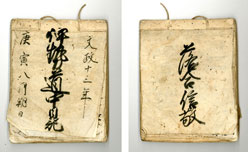 文政十三年
伊勢道中日記
庚寅八月朔日
落合信敬